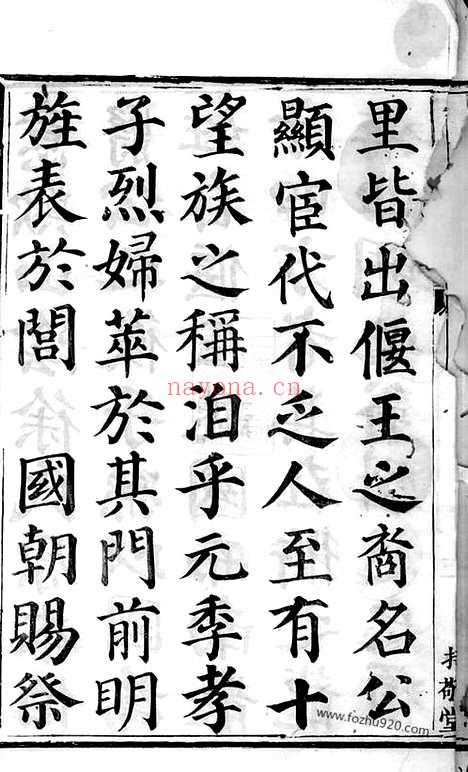 里皆出偃王之裔名公
顯宦代不乏人至有十
望族之稱洎乎元季孝
子烈婦萃於其門前明
旌表於閭 國朝賜祭
持敬堂
nayona.cn
www.fozhu920.com